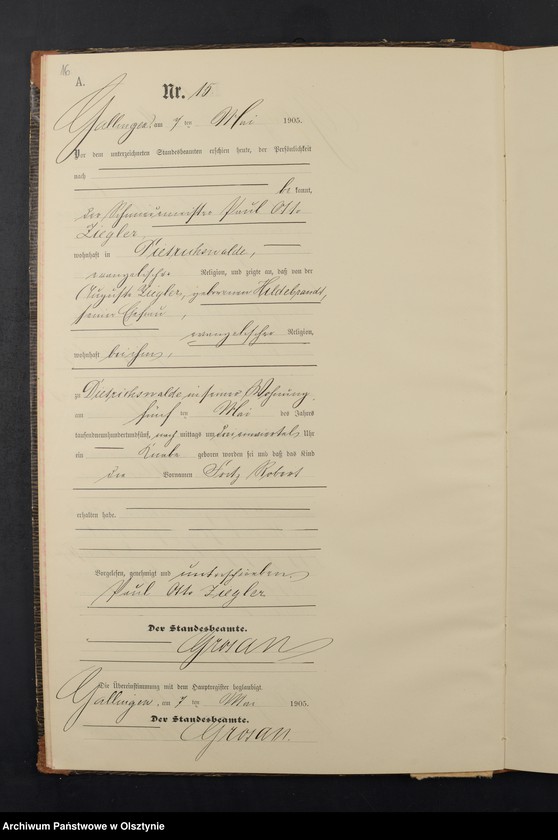 16
A.
Nr. 15
Gallingen, am 7 ten Mai 1905.
Vor dem unterzeichneten Standesbeamten erschien heute, der Persönlichkeit
nach
be kannt,
der Schneidermeister Paul Otto
Ziegler
wohnhaft in Dietrichswalde,
evangelischer Religion, und zeigte an, daß von der
Auguste Ziegler, geborenen Hildebrandt,
seiner Ehefrau,
evangelischer Religion,
wohnhaft bei ihm,
zu Dietrichswalde, in seiner Wohnung
am fünf ten Mai des Jahres
tausendneunhundertundfünf, nach mittags um Uhr
ein Knabe geboren worden sei und daß das Kind
die Vornamen Fritz Robert
erhalten habe.
Vorgelesen, genehmigt und unterschrieben
Paul Otto Ziegler
Der Standesbeamte.
Grosan
Die Übereinstimmung mit dem Hauptregister beglaubigt
Gallingen, am 7 ten Mai 1905.
Der Standesbeamte.
Grosan.
Archiwum Państwowe w Olsztynie